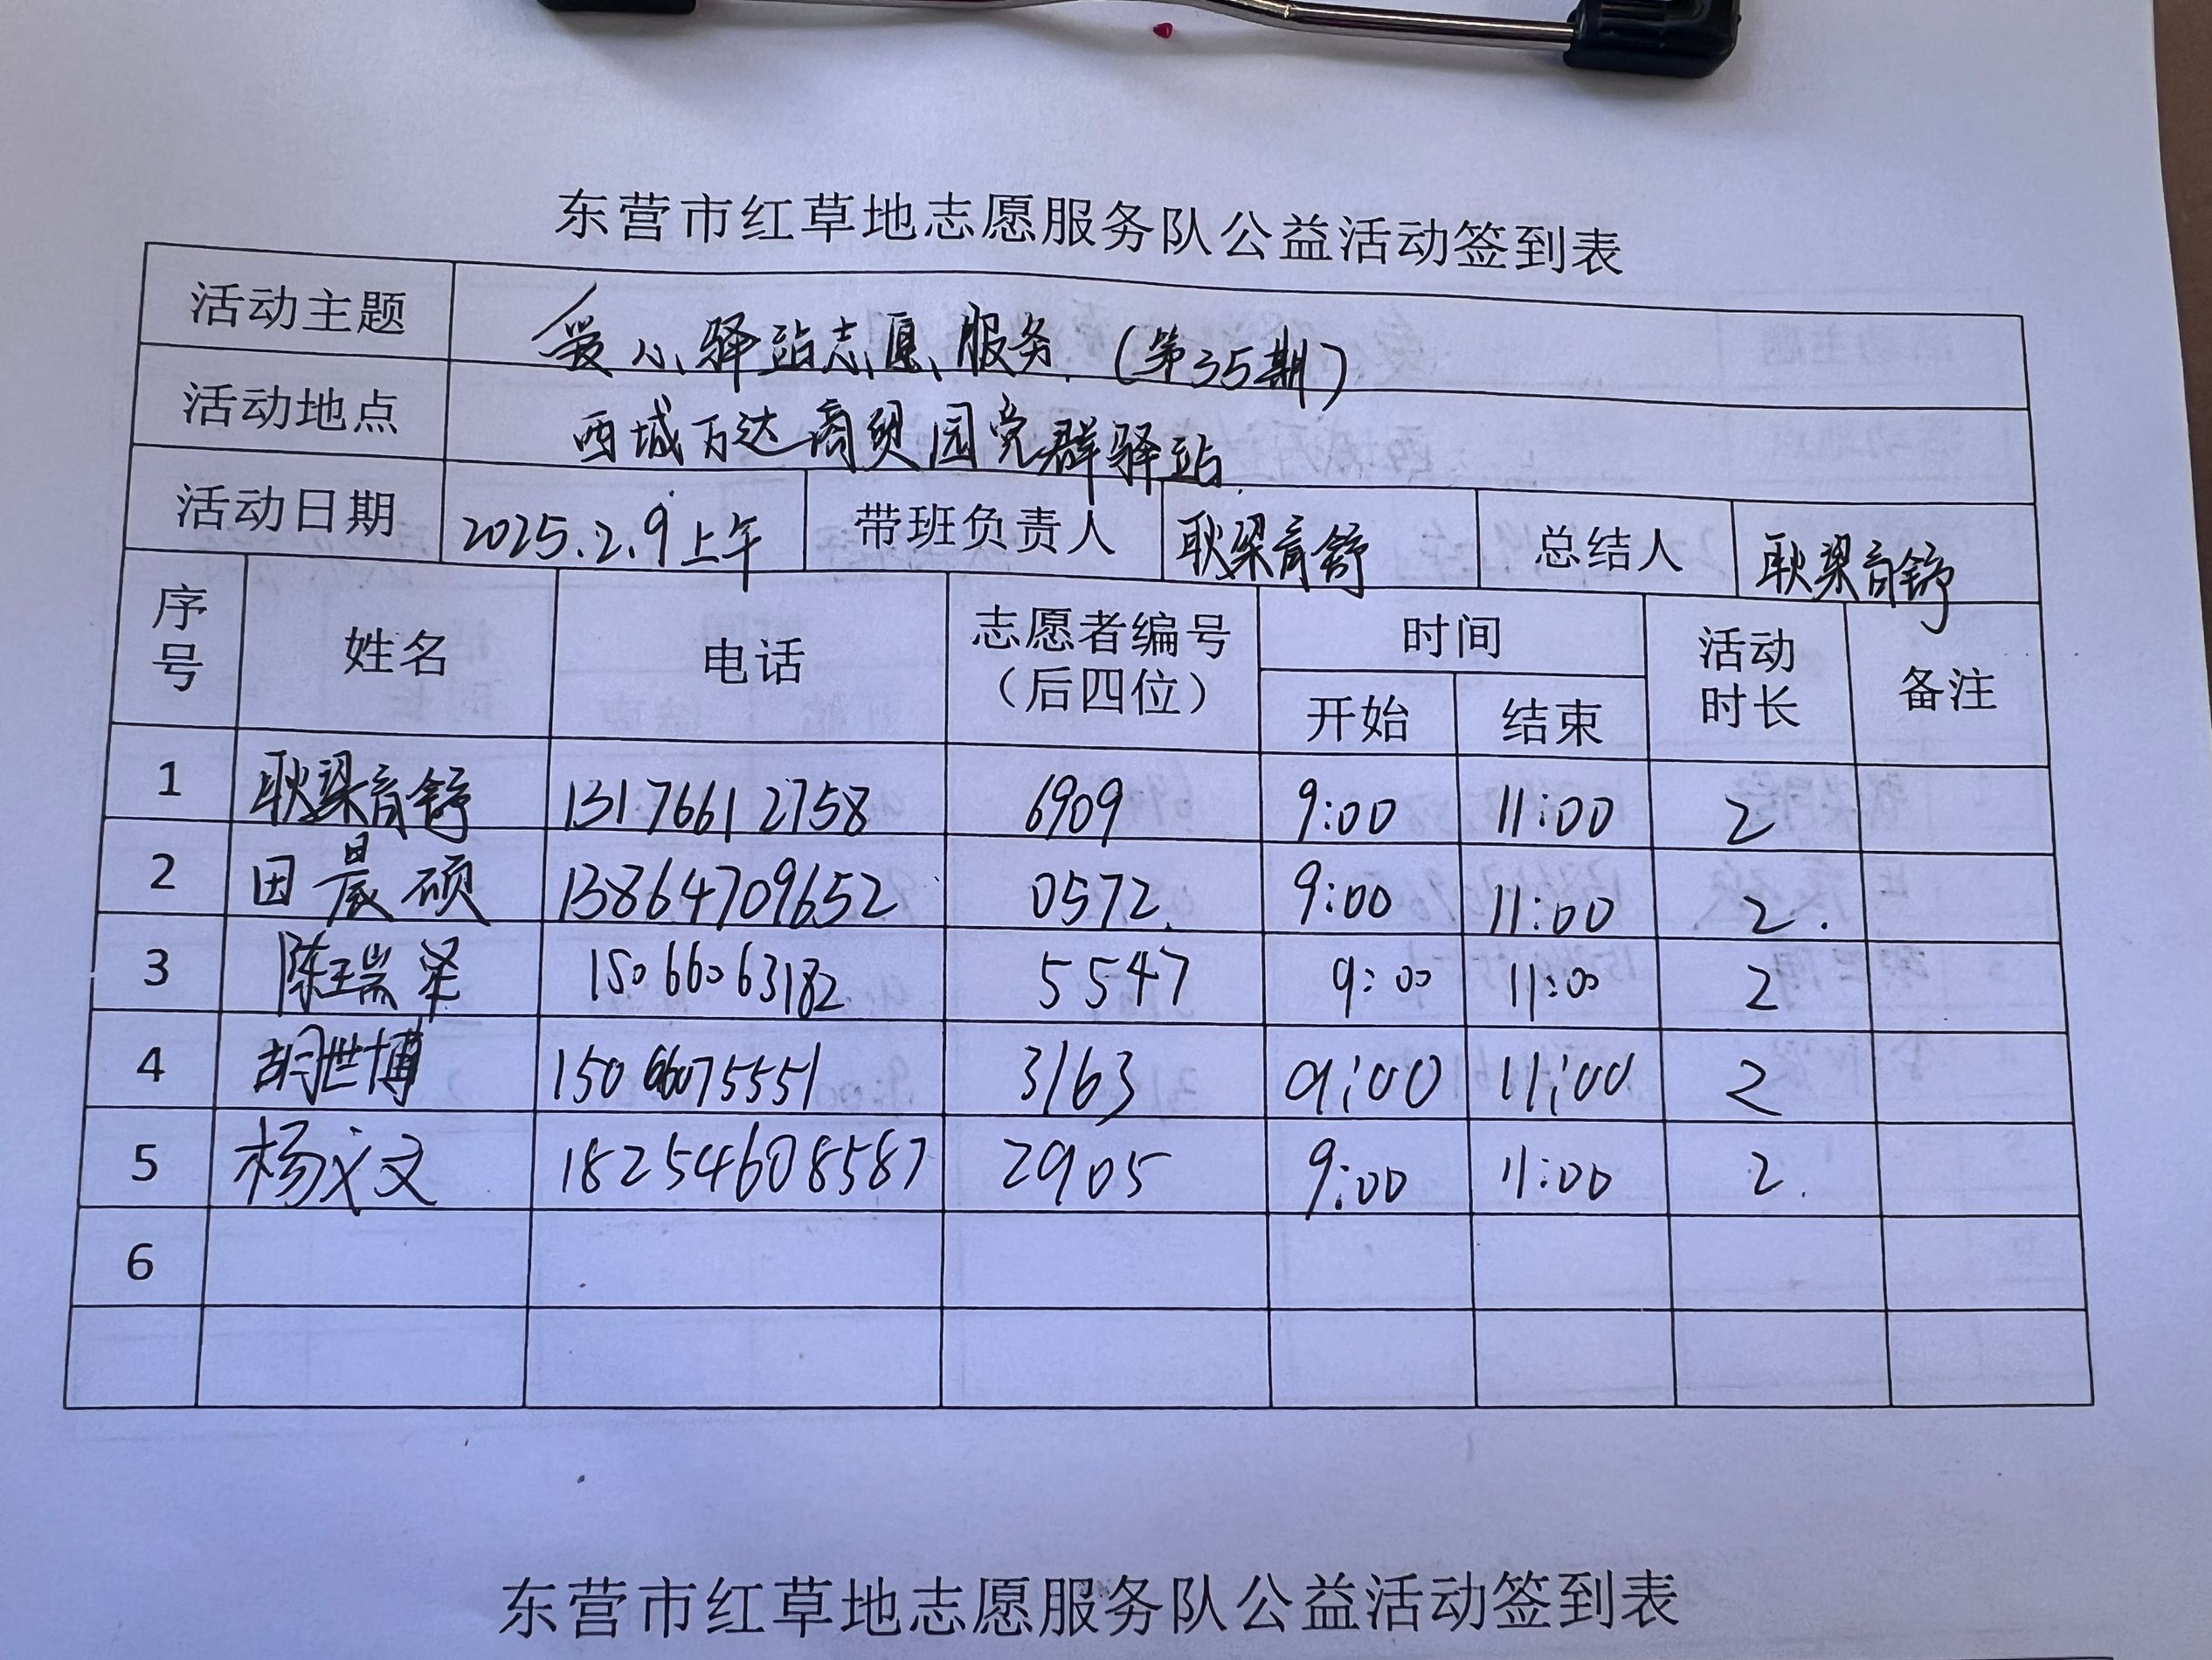 东营市红草地志愿服务队公益活动签到表
活动主题 爱心驿站志愿服务(第35期)
活动地点 西城万达商贸园党群驿站
活动日期 2025.2.9上午 带班负责人 耿梁育舒 总结人 耿梁育舒
序号 姓名 电话 志愿者编号(后四位) 时间 开始 结束 活动时长 备注
1 耿梁育舒 13176612758 6909 9:00 11:00 2
2 田晨硕 13864709652 0572. 9:00 11:00 2.
3 陈瑞泽 15066063182 5547 9:00 11:00 2
4 胡世博 15066075551 3163 9:00 11:00 2
5 杨义文 18254608587 2905 9:00 11:00 2.
6
东营市红草地志愿服务队公益活动签到表